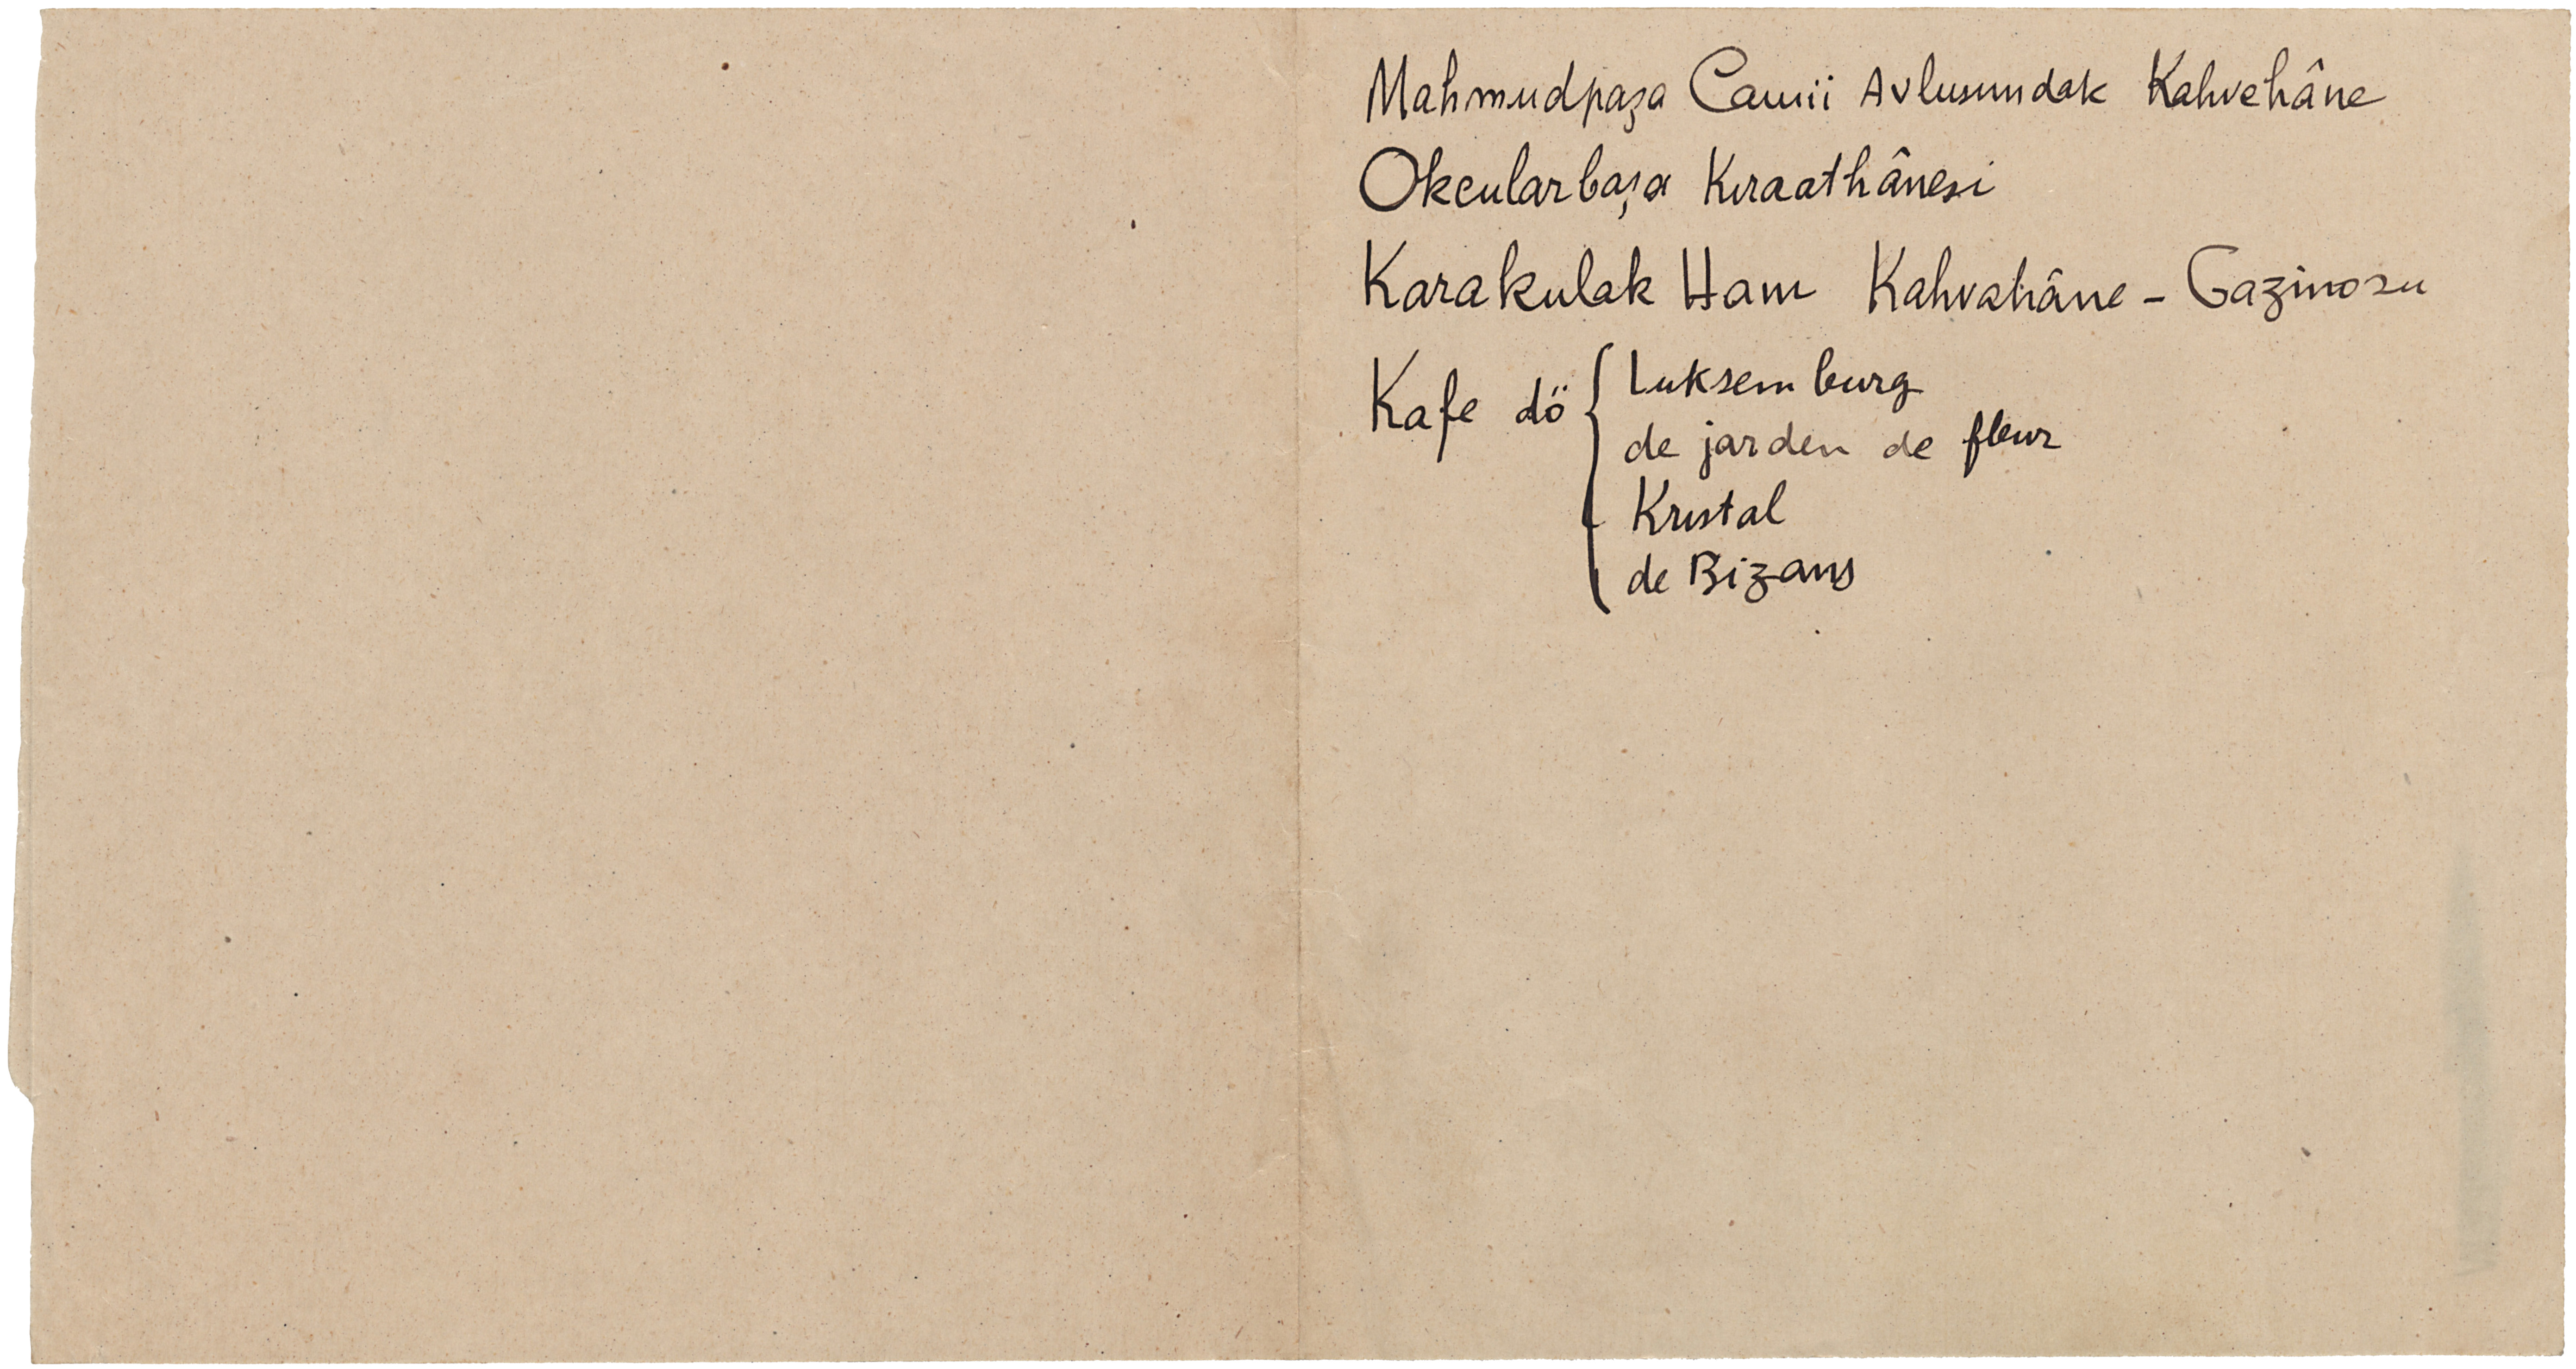 Mahmudpaşa Camii Avlusundak Kahvehâne
Okcularbaşı Kıraathânesi
Karakulak Hanı Kahvahâne - Gazinosu
Kafe dö { Luksemburg
de jarden de fleur
Kristal
de Bizans